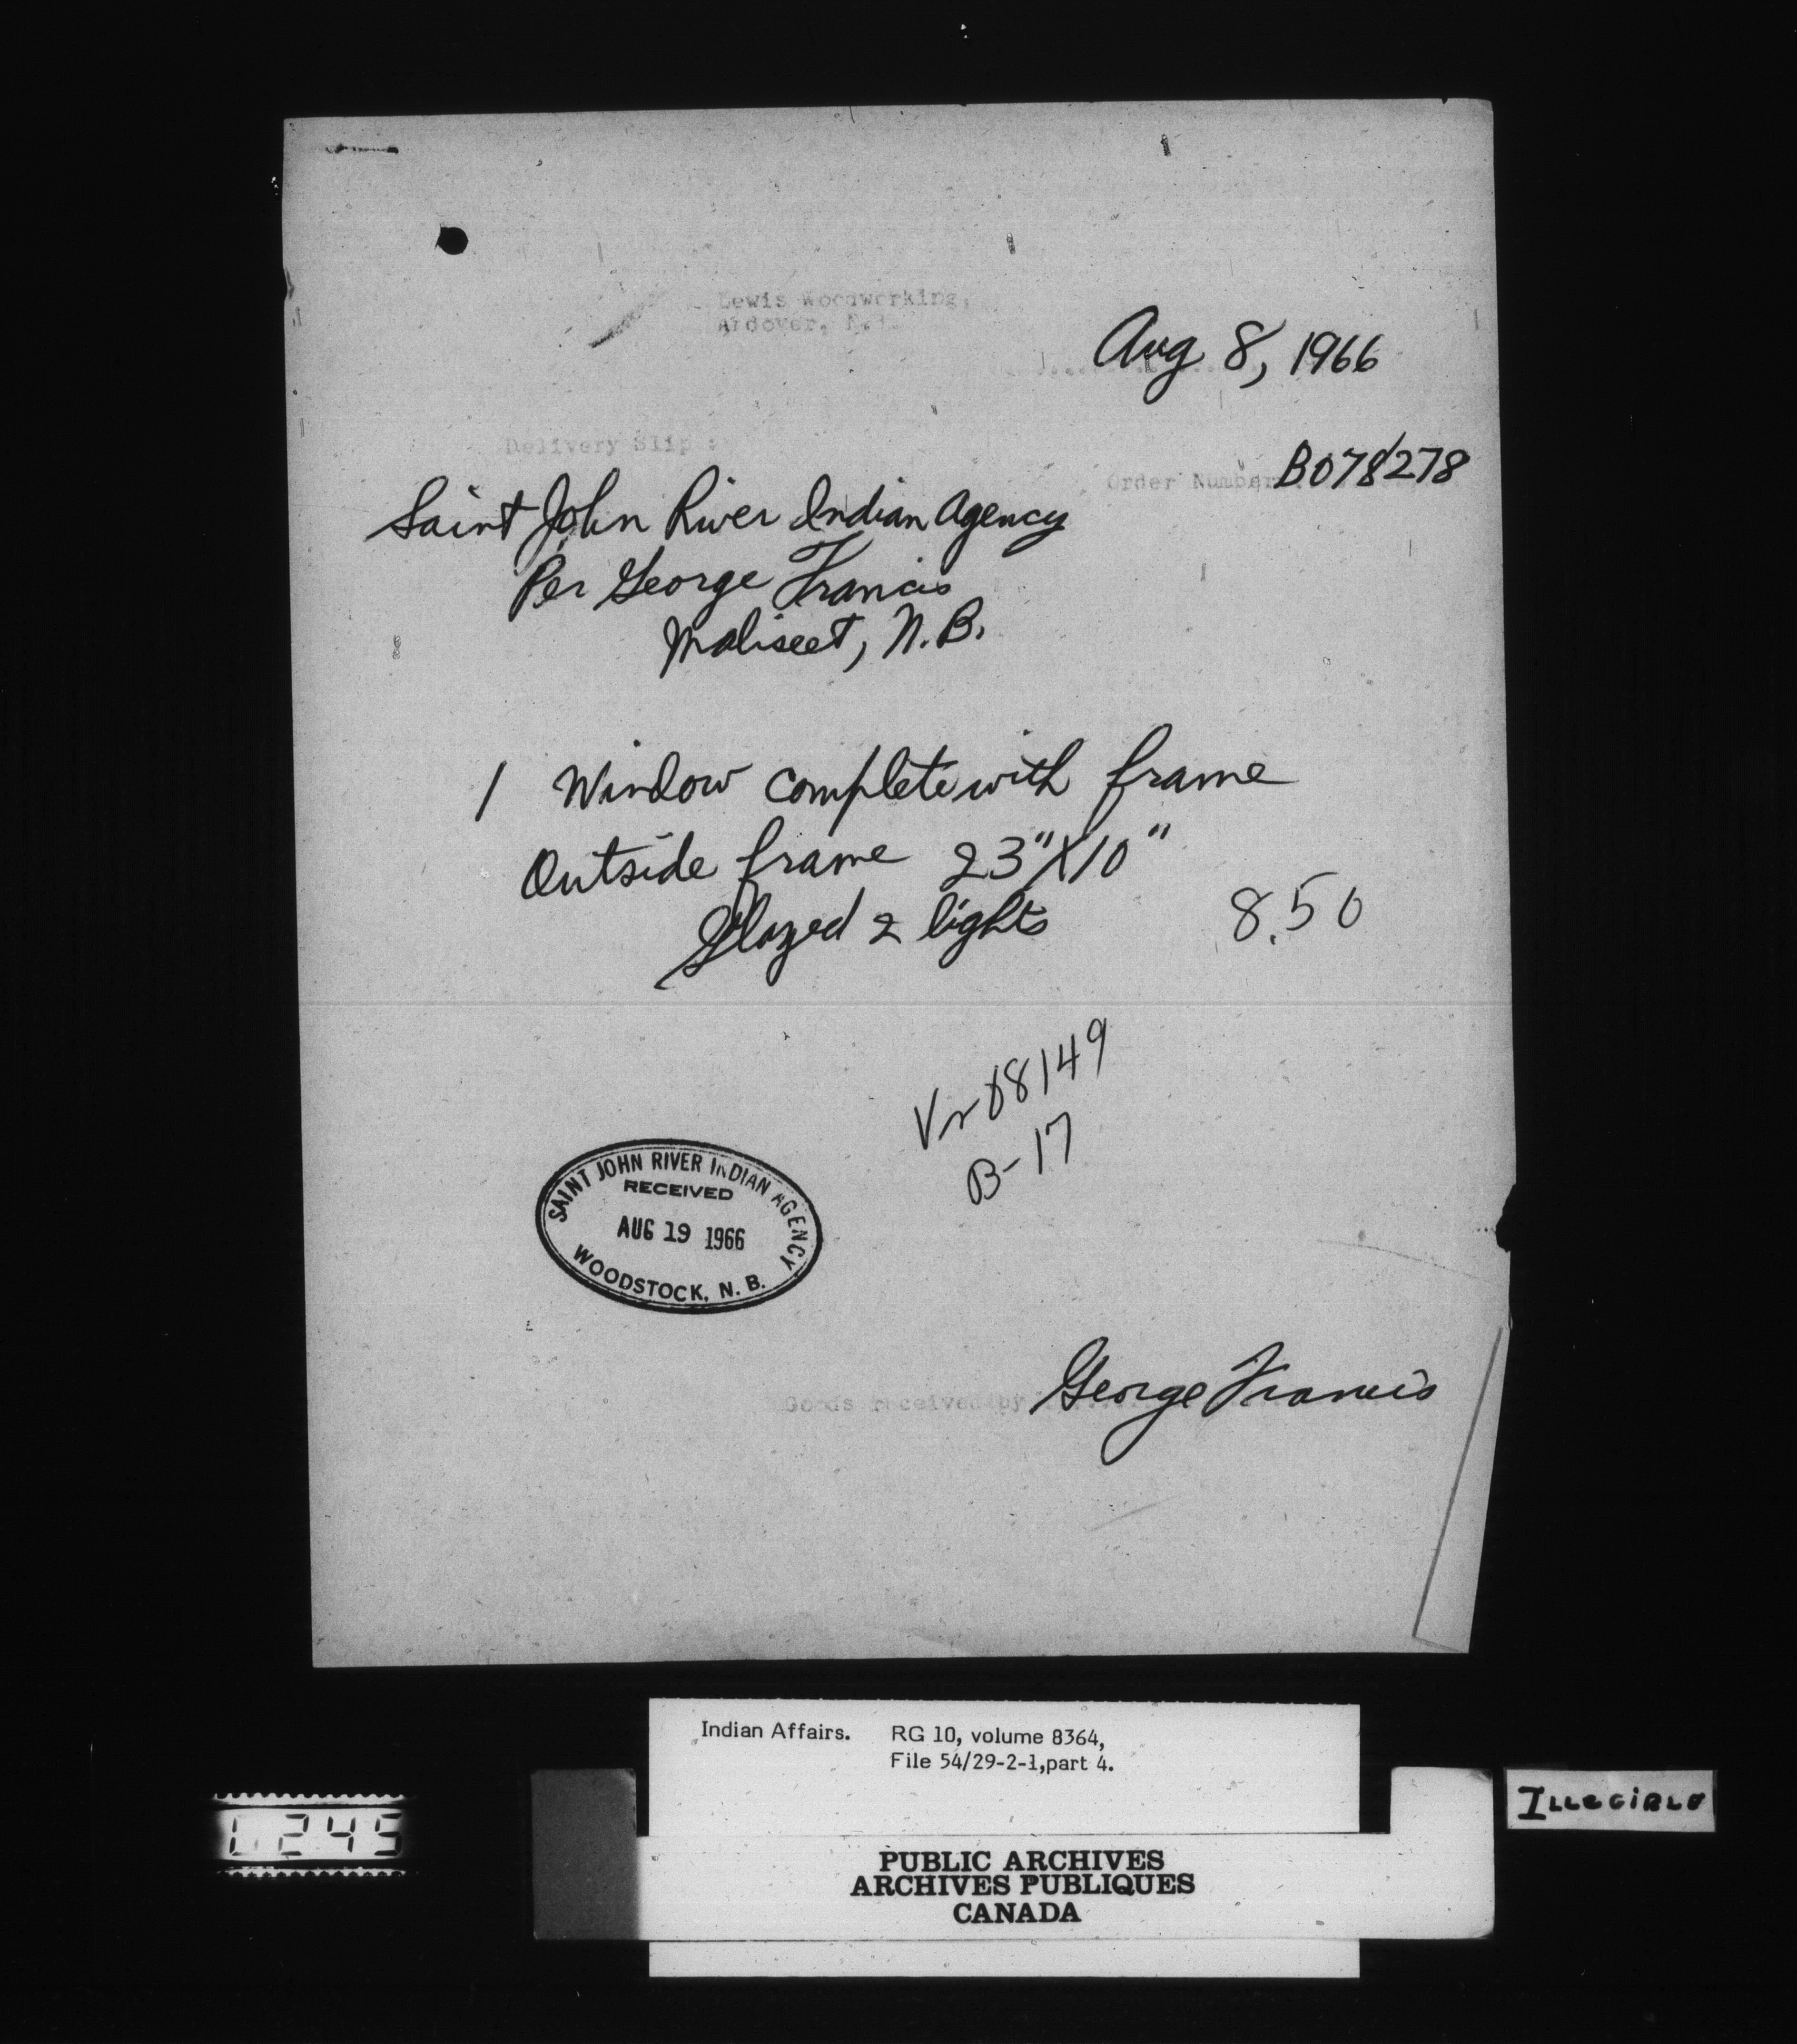 Lewis Woodworking,
Andover, N.B.
Aug 8, 1966
Delivery Slip :
Order Number B078278
Saint John River Indian Agency
Per George Francis
Maliseet, N.B.
1 Window complete with frame
Outside frame 23" X 10"
Glazed 2 lights 8.50
Vr 08149
B-17
SAINT JOHN RIVER INDIAN AGENCY
RECEIVED
AUG 19 1966
WOODSTOCK, N. B.
Goods received by George Francis
Indian Affairs. RG 10, volume 8364,
File 54/29-2-1, part 4.
PUBLIC ARCHIVES
ARCHIVES PUBLIQUES
CANADA
Illegible